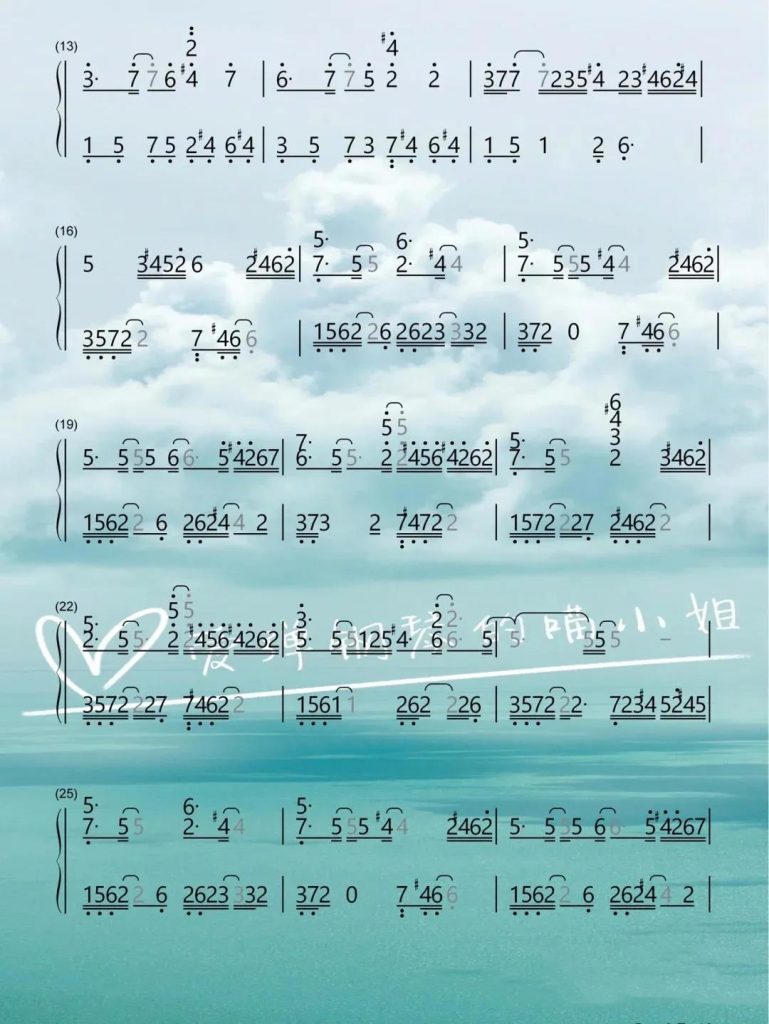 (13)
2 #4
3· 7 7 6 #4 7 | 6· 7 7 5 2 2 | 377 7235#4 23#46#24 |
1 5 7 5 2#4 6#4 | 3 5 7 3 7#4 6#4 | 1 5 1 2 6· |
(16)
5· 6· 5·
5 #3452 6 #2462 | 7· 5 5 2· #4 4 | 7· 5 55 #4 4 #2462 |
3572 2 7 #46 6 | 1562 26 2623 332 | 372 0 7 #46 6 |
(19)
7· 5 5 5· #6 4 3
5· 5 55 6 6· 5#4267 | 6· 5 5· 2 2#456#4262 | 7· 5 5 2 #3462 |
1562 2 6 262#4 4 2 | 373 2 #7472 2 | 1572 227 #2462 2 |
(22)
5· 5 5 3· 2 2·
2· 5 5· 2 #456#4262 | 5· 5125#4· 6 6· 5 | 5· 55 5 – |
3572 227 #7462 2 | 1561 1 262 226 | 3572 22· 7234 5245 |
爱弹钢琴的喵小姐
(25)
5· 6· 5·
7· 5 5 2· #4 4 | 7· 5 55 #4 4 #2462 | 5· 5 55 6 6 5#4267 |
1562 2 6 2623 332 | 372 0 7 #46 6 | 1562 2 6 262#4 4 2 |